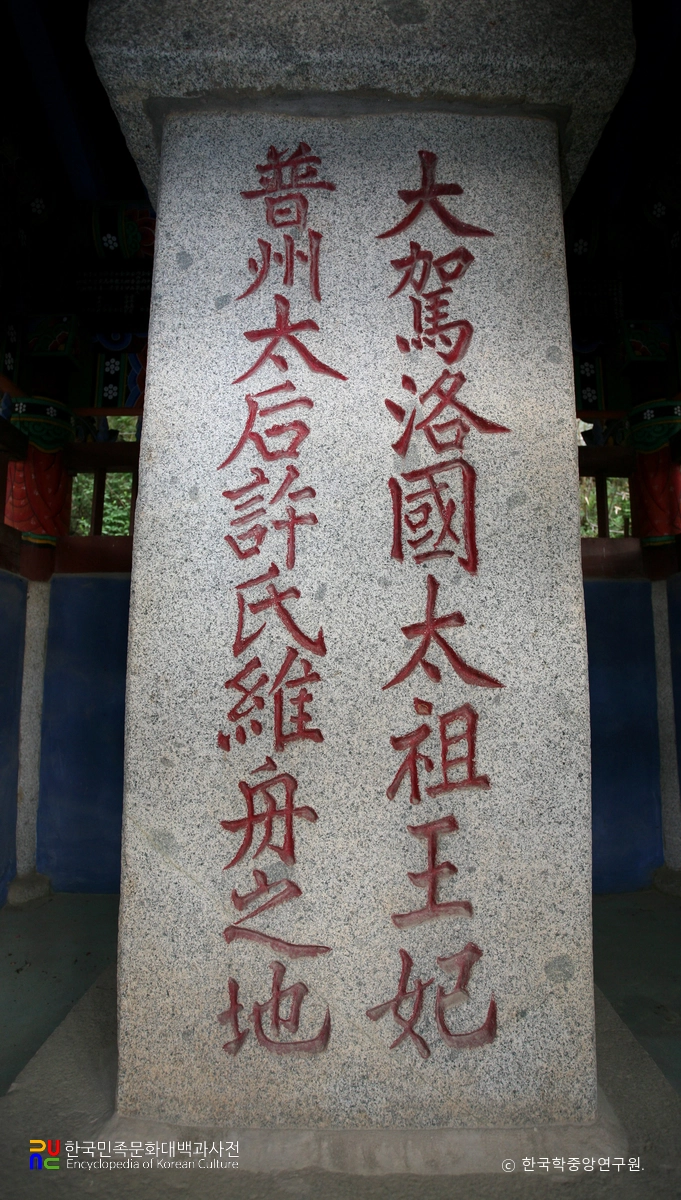 大駕洛國太祖王妃
普州太后許氏維舟之地
한국민족문화대백과사전
Encyclopedia of Korean Culture
ⓒ 한국학중앙연구원.